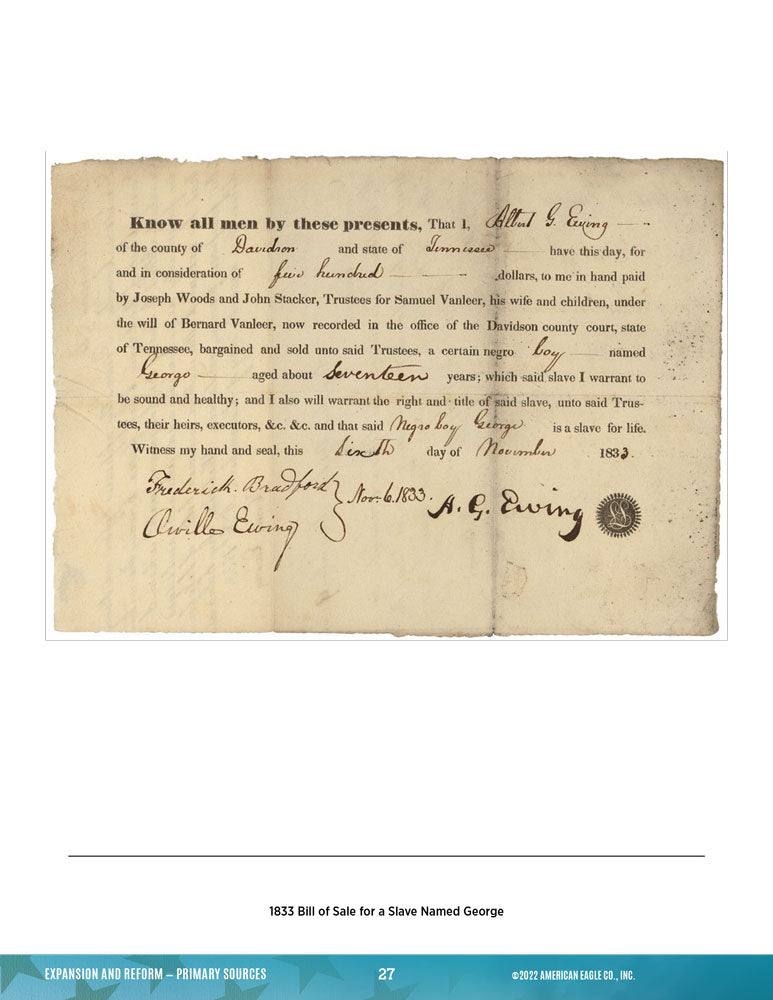 Know all men by these presents, That I, Albert G. Ewing
of the county of Davidson and state of Tennessee have this day, for
and in consideration of five hundred dollars, to me in hand paid
by Joseph Woods and John Stacker, Trustees for Samuel Vanleer, his wife and children, under
the will of Bernard Vanleer, now recorded in the office of the Davidson county court, state
of Tennessee, bargained and sold unto said Trustees, a certain negro boy named
George aged about seventeen years; which said slave I warrant to
be sound and healthy; and I also will warrant the right and title of said slave, unto said Trus-
tees, their heirs, executors, &c. &c. and that said Negro boy George is a slave for life.
Witness my hand and seal, this Sixth day of November 1833.
Frederick. Bradford
Orville Ewing
Nov. 6. 1833.
A. G. Ewing
LS
1833 Bill of Sale for a Slave Named George
EXPANSION AND REFORM – PRIMARY SOURCES 27 ©2022 AMERICAN EAGLE CO., INC.